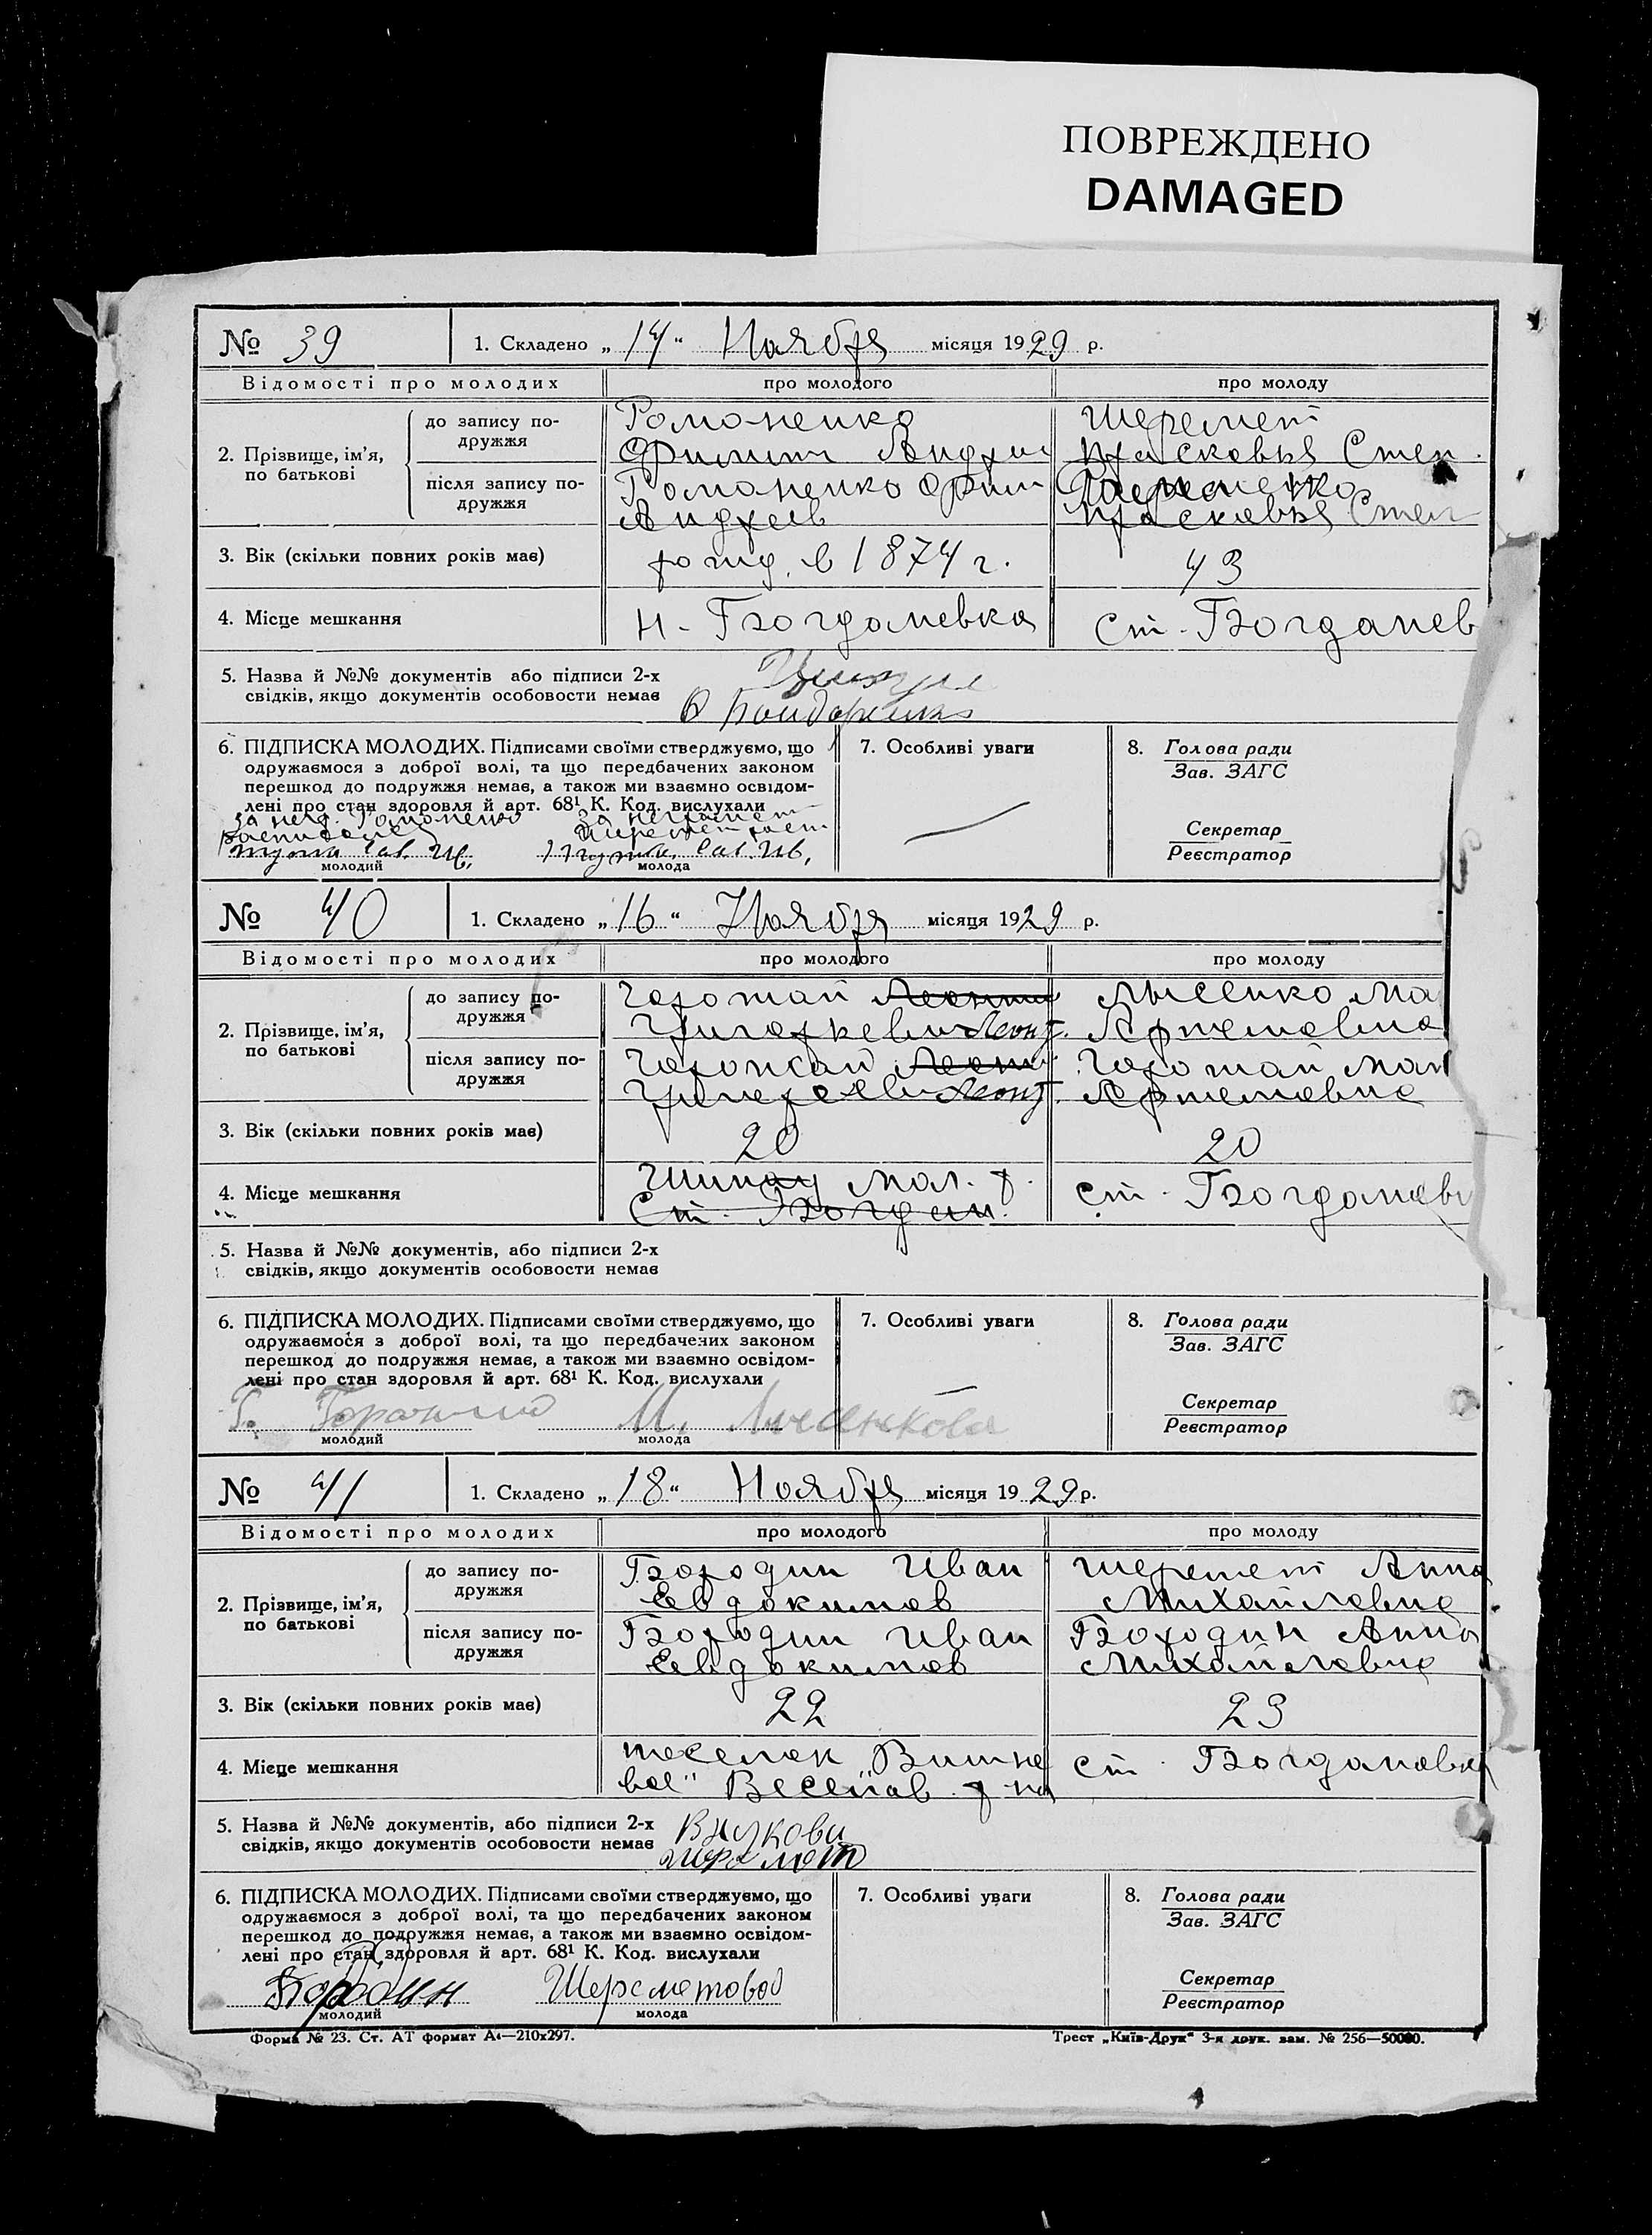 ПОВРЕЖДЕНО
DAMAGED
№ 39 1. Складено „14“ Ноября місяця 1929 р.
Відомості про молодих про молодого про молоду
2. Прізвище, ім’я, по батькові
до запису подружжя
Романенко Шеремет
Филипп Андрее Прасковья Степ.
після запису подружжя
Романенко Филип Романенко
Андреев Прасковья Степ
3. Вік (скільки повних років має) рожд. в 1874 г. 43
4. Місце мешкання Н-Богдановка Ст. Богданов
5. Назва й №№ документів або підписи 2-х
свідків, якщо документів особовости немає Бондаренко
6. ПІДПИСКА МОЛОДИХ. Підписами своїми стверджуємо, що 7. Особливі уваги 8. Голова ради
одружаємося з доброї волі, та що передбачених законом Зав. ЗАГС
перешкод до подружжя немає, а також ми взаємно освідом-
лені про стан здоровля й арт. 68¹ К. Код. вислухали
за негр. Романенко за неграмот Секретар
расписался Шеремет расп. Реєстратор
молодий молода
№ 40 1. Складено „16“ Ноября місяця 1929 р.
Відомості про молодих про молодого про молоду
2. Прізвище, ім’я, по батькові
до запису подружжя
Горожай Леонти Лысенко Ма
Григорьевич Леонт. Артемовна
після запису подружжя
Горожай Леонт Горожай Мар
Григорьев Леонт. Артемовна
3. Вік (скільки повних років має) 20 20
4. Місце мешкання мал. р. ст. Богданов
Ст. Богдан.
5. Назва й №№ документів, або підписи 2-х
свідків, якщо документів особовости немає
6. ПІДПИСКА МОЛОДИХ. Підписами своїми стверджуємо, що 7. Особливі уваги 8. Голова ради
одружаємося з доброї волі, та що передбачених законом Зав. ЗАГС
перешкод до подружжя немає, а також ми взаємно освідом-
лені про стан здоровля й арт. 68¹ К. Код. вислухали
Г. М. Лысенкова Секретар
молодий молода Реєстратор
№ 41 1. Складено „18“ Ноября місяця 1929 р.
Відомості про молодих про молодого про молоду
2. Прізвище, ім’я, по батькові
до запису подружжя
Бородин Иван Шеремет Анна
Евдокимов Михайловна
після запису подружжя
Бородин Иван Бородин Анна
Евдокимов Михайловна
3. Вік (скільки повних років має) 22 23
4. Місце мешкання поселок Вишне ст. Богдановка
вое" Веселов. р-на
5. Назва й №№ документів, або підписи 2-х
свідків, якщо документів особовости немає Внукова
Шеремет
6. ПІДПИСКА МОЛОДИХ. Підписами своїми стверджуємо, що 7. Особливі уваги 8. Голова ради
одружаємося з доброї волі, та що передбачених законом Зав. ЗАГС
перешкод до подружжя немає, а також ми взаємно освідом-
лені про стан здоровля й арт. 68¹ К. Код. вислухали
Бородин Шереметовой Секретар
молодий молода Реєстратор
Форма № 23. Ст. АТ формат А4—210х297. Трест „Київ-Друк“ 3-я друк. зам. № 256—50000.